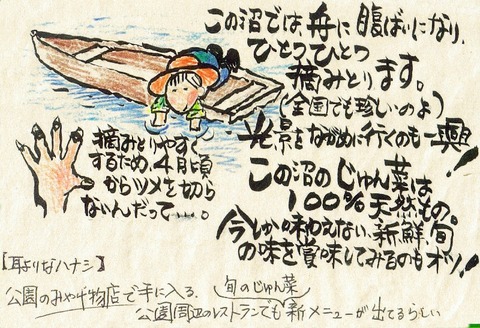 この沼では、舟に腹ばいになり、
ひとつひとつ
摘みとります。
(全国でも珍しいのよ)
光景をながめに行くのも一興!
摘みとりやすく
するため、4月頃
からツメを切ら
ないんだって…。
この沼のじゅん菜は
100%天然もの。
今しか味わえない、新鮮、旬
の味を賞味してみるのもオツ!
【耳よりなハナシ】
公園のみやげ物店で手に入る。
旬のじゅん菜
公園周辺のレストランでも新メニューが出てるらしい